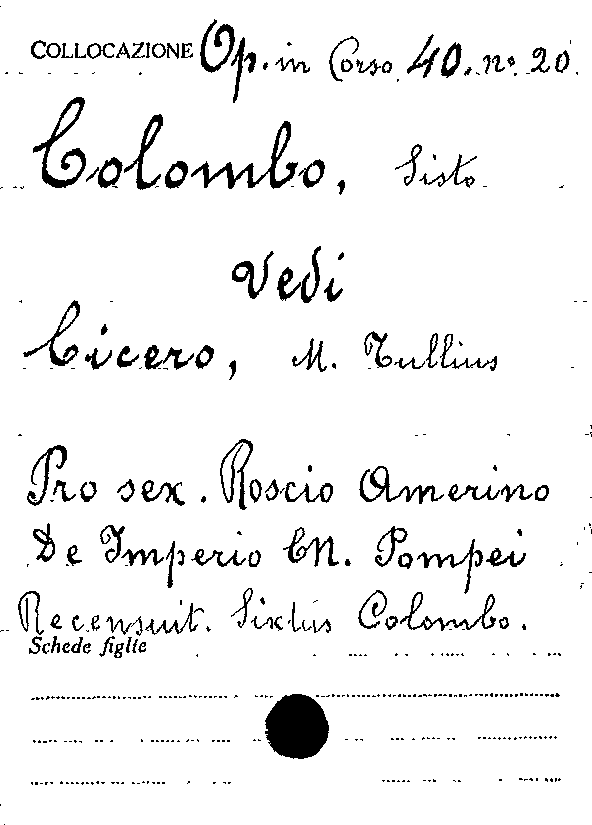 COLLOCAZIONE Op. in Corso 40. n° 20
Colombo, Sisto
Vedi
Cicero, M. Tullius
Pro sex. Roscio Amerino
De Imperio CN. Pompei
Recensuit. Sixtus Colombo.
Schede figlie